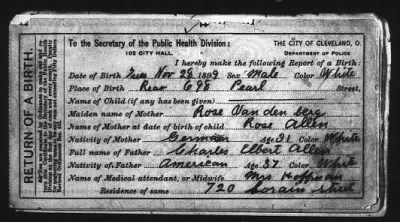 RETURN OF A BIRTH.
To the Secretary of the Public Health Division:
THE CITY OF CLEVELAND, O.
102 CITY HALL.
DEPARTMENT OF POLICE
I hereby make the following Report of a Birth:
Date of Birth Tues Nov 28 1899 Sex Male Color White
Place of Birth Rear 698 Pearl Street,
Name of Child (if any has been given)
Maiden name of Mother Rose Van den berg
Name of Mother at date of birth of child Rose Allen
Nativity of Mother German Age 31 Color White
Full name of Father Charles Elbert Allen
Nativity of Father American Age 37 Color White
Name of Medical attendant, or Midwife Mrs Hoffman
Residence of same 720 Lorain street